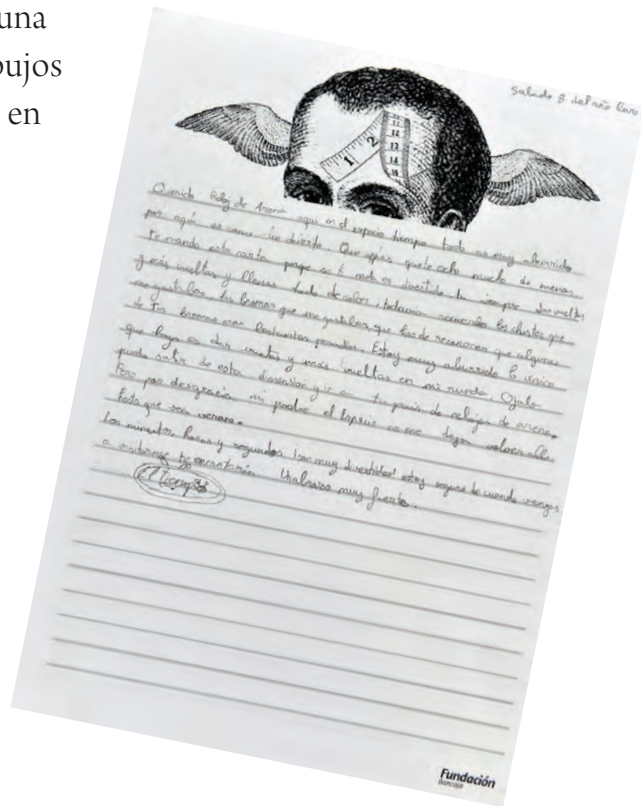 una
bujos
en
Sabado 8 del año luna
1 2 11 12 13 14 15
Querido Reloj de Arena aqui en el espacio tiempo todo es muy aburrido
por aquí es como un desierto. Que sepas que te echo mucho de menos,
te mando esta carta porque sin ti nada es divertido tu siempre das vueltas
y más vueltas y llenas todo de color i recuerdo los chistes que
me gustaban, tus bromas que me gustaban que has de reconocer que algunas
de tus bromas eran bastantes pesadas. Estoy muy aburrido lo único
que hago es dar vueltas y más vueltas en mi mundo. Ojala
pueda salir de esta dimension y ir a tu pais de relojes de arena.
Pero por desgracia mi padre el Espacio no me dejan volver allí
hasta que sea verano.
Los minutos, horas y segundos ¡son muy divertidos! estoy seguro de cuando vengas
a visitarme te encantarán. Un abrazo muy fuerte.
El Tiempo
Fundación
Bancaja